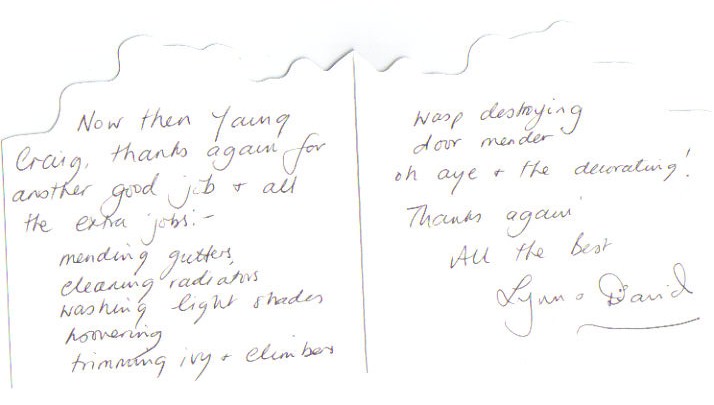 Now then Young
Craig, thanks again for
another good job + all
the extra jobs:-
mending gutters,
cleaning radiators
washing light shades
hoovering
trimming ivy + climbers
wasp destroying
door mender
oh aye + the decorating!
Thanks again
All the Best
Lynn + David